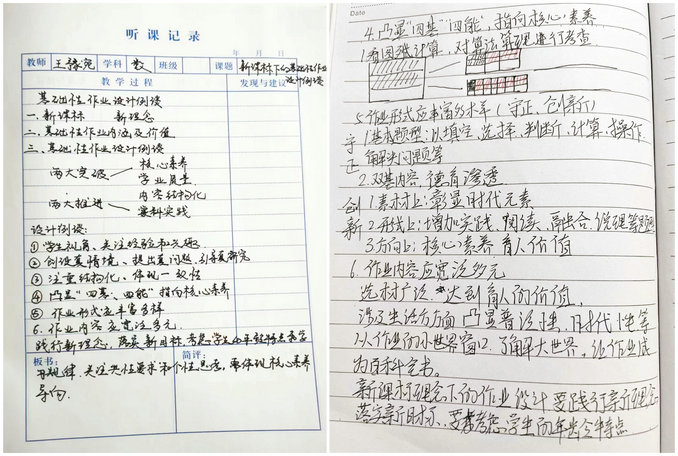 听课记录
年 月 日
教师 王豫宛 学科 数 班级 课题 新课标下的基础性作业设计例谈
教学过程 发现与建议
基础性作业设计例谈
一、新课标 新理念
二、基础性作业内涵及价值
三、基础性作业设计例谈
两大突破 核心素养
学业质量
两大推进 内容结构化
学科实践
设计例谈:
① 学生视角、关注经验和兴趣
② 创设真情境、提出真问题、引导真研究
③ 注重结构化、体现一致性
④ 凸显“四基、四能”指向核心素养
⑤ 作业形式应丰富多样
6. 作业内容应宽泛多元.
践行新理念,落实新目标,考虑学生的年龄特点,教学
板书: 简评:
与规律,关注共性要求和个性思考,要体现核心素养
导向.
Date
4.凸显“四基”“四能”,指向核心素养
1看图纸计算,对算法算理进行考查
5.作业形式应丰富多样 (守正、创新)
守正 1.基本题型:以填空,选择,判断,计算,操作,
解决问题等
2.双基内容,德育渗透
创新 1.素材上:彰显时代元素
2.形式上:增加实践、阅读、说理等题型
3.方向上:核心素养 育人价值
6.作业内容应宽泛多元
选材广泛,达到育人的价值,
涉及生活方方面 凸显普适性,时代性等
以小作业的小世界窗口,了解大世界,让作业成
为百科全书。
新课标理念下的作业设计要践行新理念
落实新目标,要考虑学生的年龄特点